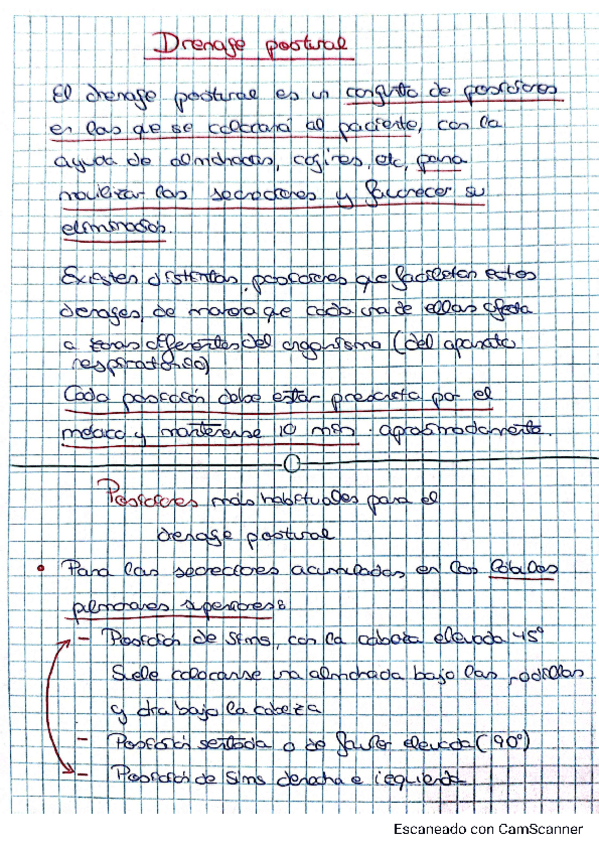 Drenage postural
El drenage postural es un conjunto de posiciones
en las que se colocará al paciente, con la
ayuda de almohadas, cojines, etc, para
movilizar las secreciones y favorecer su
eliminación.
Existen distintas posiciones que facilitan estos
drenages, de manera que cada una de ellas afecta
a zonas diferentes del organismo (del aparato
respiratorio)
Cada posición debe estar prescrita por el
médico y mantenerse 10 min aproximadamente.
Posiciones más habituales para el
drenage postural
• Para las secreciones acumuladas en los lóbulos
pulmonares superiores:
- Posición de Sims, con la cabeza elevada 45°
Suele colocarse una almohada bajo las rodillas
y otra bajo la cabeza
- Posición sentada o de fauler elevada (90°)
- Posición de Sims derecha e izquierda
Escaneado con CamScanner